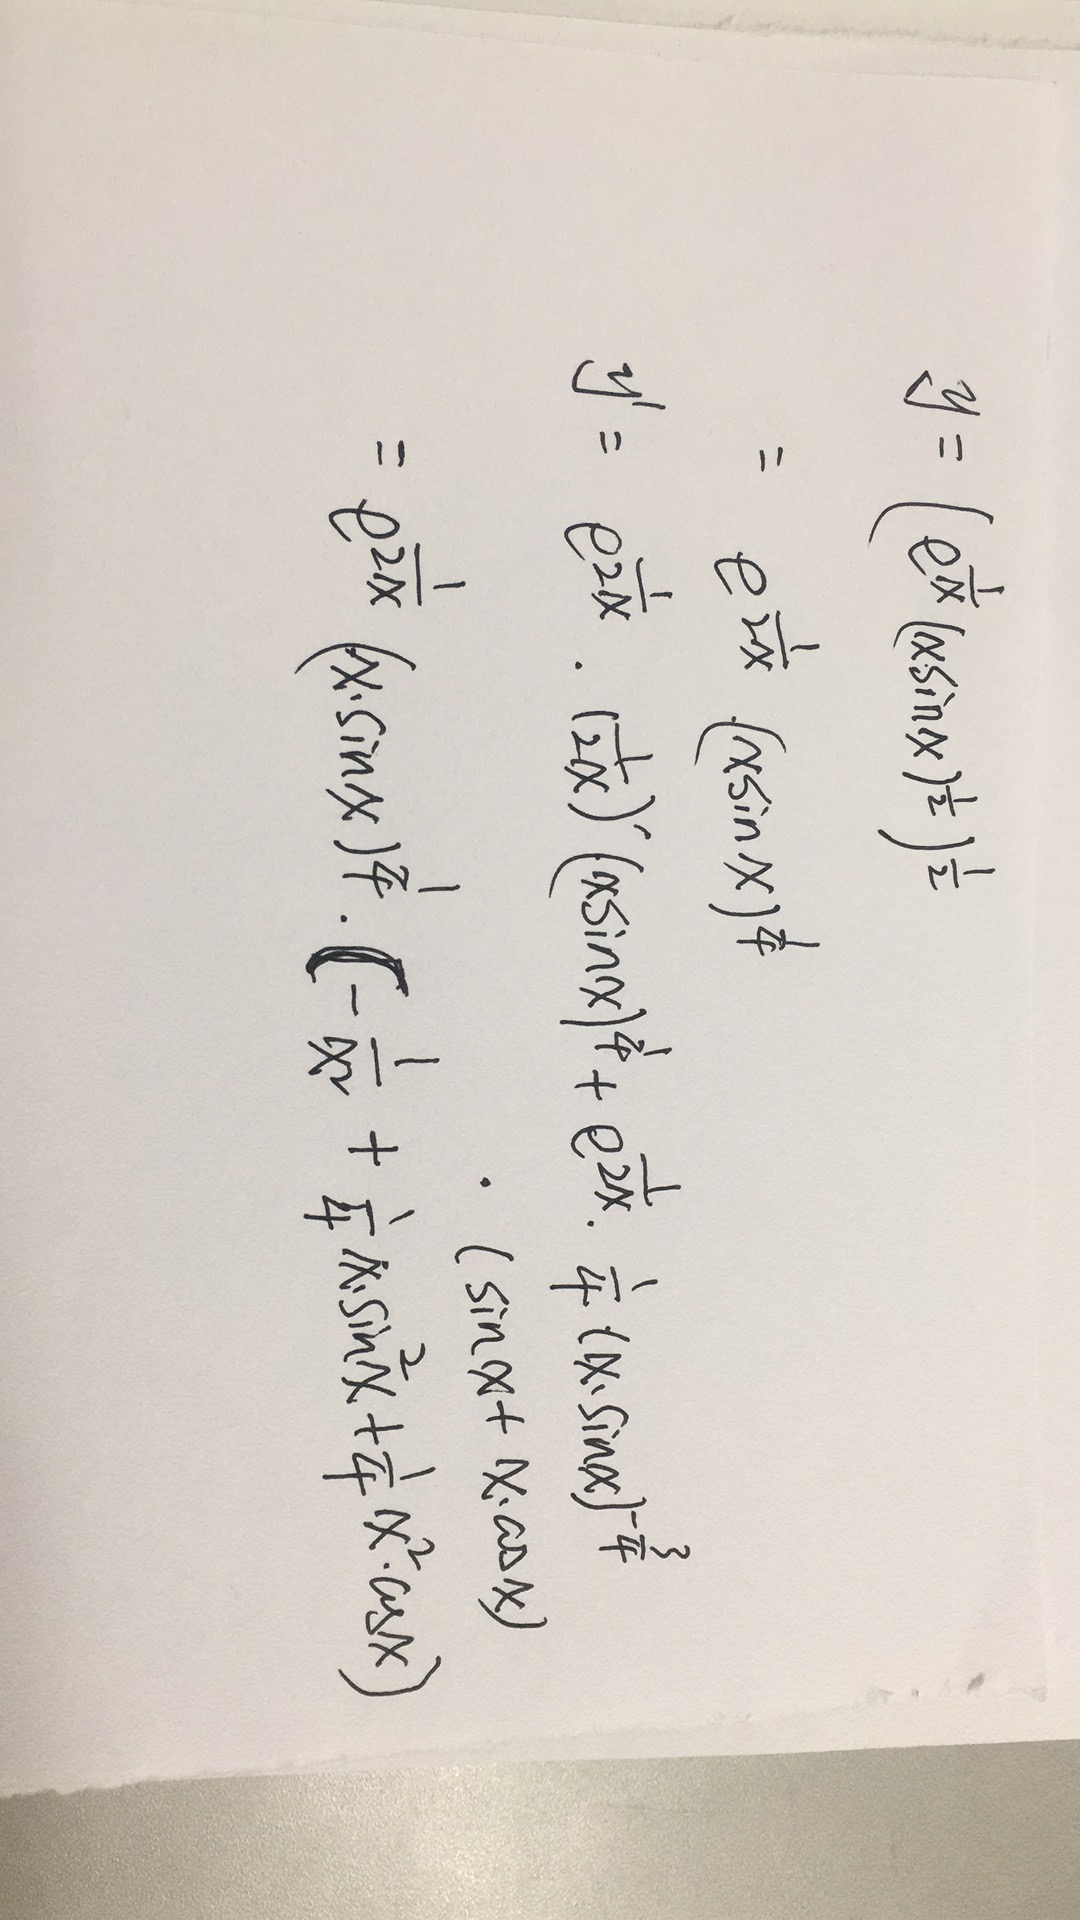 y = (e^{\frac{1}{x}}(x\sin x)^{\frac{1}{2}})^{\frac{1}{2}}
= e^{\frac{1}{2x}} (x\sin x)^{\frac{1}{4}}
y' = e^{\frac{1}{2x}} \cdot (\frac{1}{2x})' (x\sin x)^{\frac{1}{4}} + e^{\frac{1}{2x}} \cdot \frac{1}{4} (x \cdot \sin x)^{-\frac{3}{4}}
\cdot (\sin x + x \cdot \cos x)
= e^{\frac{1}{2x}} (x \cdot \sin x)^{\frac{1}{4}} \cdot (-\frac{1}{2x} + \frac{1}{4} x \cdot \sin^2 x + \frac{1}{4} x^2 \cdot \cos x)